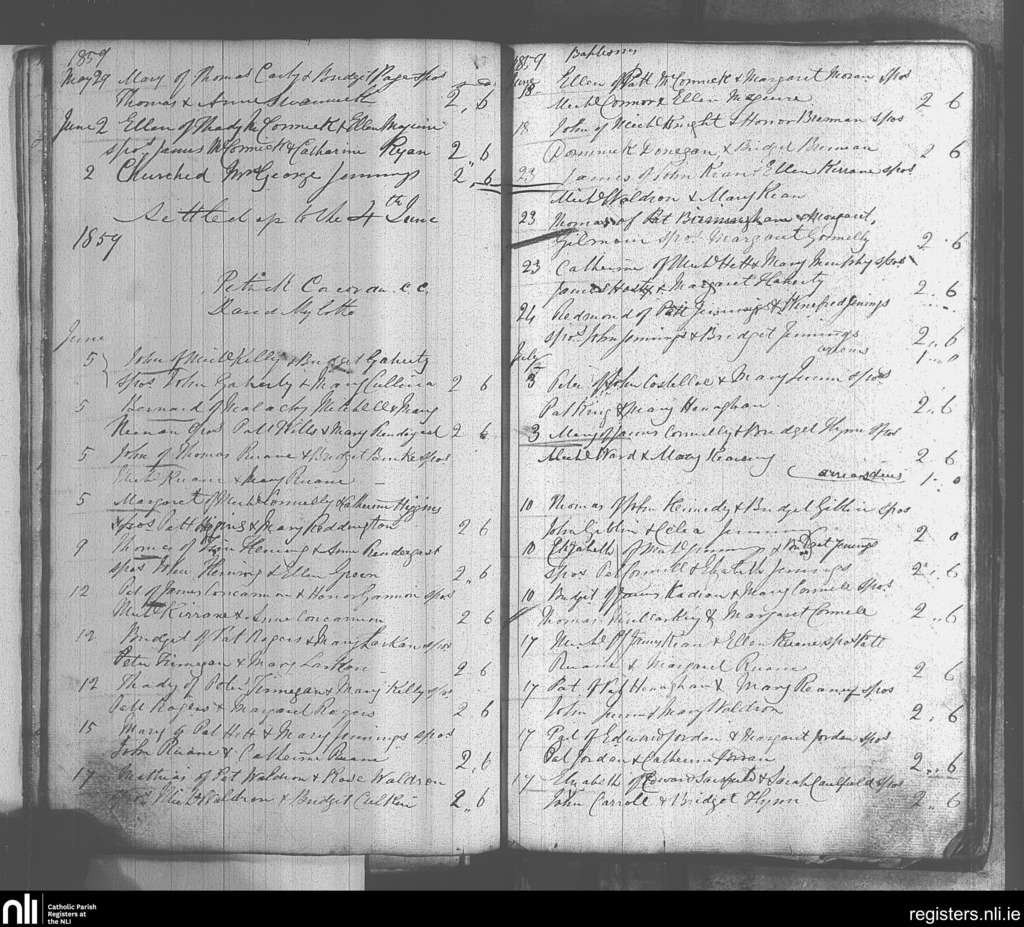 1859
May 29 Mary of Thomas Carty & Bridget Page spos
Thomas & Anne 2,, 6
June 2 Ellen of Thady McCormick & Ellen Maguire
spos. James McCormick & Catharine Ryan 2 6
2 Churched Mrs George Jennings 2,, 6
Settled up to the 4th June
1859
Patrick Corcoran C.C.
David Mylotte
June
5 John of Michl Kelly & Bridget Gaherty
spos John Gaherty & Mary Cullina 2 6
5 Bernard of Malachy Mitchell & Mary
spos Patt Wills & Mary Rendegast 2 6
5 John of Thomas Ruane & Bridget Burke spos
Ruane & Mary Ruane
5 Margaret of Michl Connelly & Catherine Higgins
spos Patt Higgins & Mary Reddington 2 6
9 Thomas of Fleming & Anne Rendergast
spos John Fleming & Ellen Green 2,, 6
12 Pat of James Concannon & Honor Gannon spos
Michl Kirrane & Anne Concannon 2 6
12 Bridget of Pat Rogers & Mary Larkan spos
Peter Finnegan & Mary Larkan 2 6
12 Thady of Peter Finnegan & Mary Kelly spos
Patt Rogers & Margaret Rogers 2 6
15 Mary of Pat Hett & Mary Jennings spos
John Ruane & Catherine Ruane 2,, 6
17 Mathias of Pat Waldron & Rose Waldron
Michl Waldron & Bridget Culkin 2,, 6
1859 Baptisms
June 18 Ellen of Patt McCormick & Margaret Moran spos
Michl Connor & Ellen Maguire 2 6
18 John of Michl Knight & Honor Brennan spos
Dominick Donegan & Bridget Brennan 2 6
23 James of John Kean & Ellen Kerrane spos
Michl Waldron & Mary Kean
23 Thomas of Pat Birmingham & Margaret
Gilmour spos. Margaret Connelly 2 6
23 Catherine of Michl Hett & Mary Murphy spos
James Hosty & Margaret Flaherty 2,, 6
24 Redmond of Patt Jennings & Winefred Jennings
spos John Jennings & Bridget Jennings 2,, 6
1 .. 0
July
3 Peter of John Costelloe & Mary spos
Pat King & Mary Hanaghan 2,, 6
3 Mary of James Connelly & Bridget Flynn spos
Michl Ward & Mary Kearney 2 6
1 .. 0
10 Thomas of John Kennedy & Bridget Giblin spos
John Giblin & Celia 2 0
10 Elizabeth of & Bridget Jennings
spos Pat Connell & Elizabeth Jennings 2,, 6
10 Bridget of James Kadian & Mary Connell spos
Thomas & Margaret Connell 2,, 6
17 Michl of James Kean & Ellen Ruane spos Patt
Ruane & Margaret Ruane 2 6
17 Pat of Pat Hanaghan & Mary Reaney spos
John & Mary Waldron 2,, 6
17 Pat of Edward Jordan & Margaret Jordan spos
Pat Jordan & Catherine Jordan 2,, 6
17 Elizabeth of Edward & Sarah Caulfield spos
John Carroll & Bridget Flynn 2 6
nli
Catholic Parish
Registers at
the NLI
registers.nli.ie